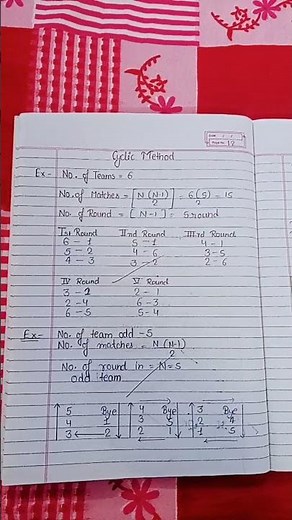 Page No. 18
Cyclic Method
Ex- No. of Teams = 6
No. of Matches = [N(N-1)/2] = 6(5)/2 = 15
No. of Round = [N-1] = 5 round
Ist Round IInd Round IIIrd Round
6 - 1 5 - 1 4 - 1
5 - 2 4 - 6 3 - 5
4 - 3 3 - 2 2 - 6
IV Round V Round
3 - 1 2 - 1
2 - 4 6 - 3
6 - 5 5 - 4
Ex- No. of team odd - 5
No. of matches = N(N-1)/2
No. of round in = N = 5
odd team
5 Bye 4 Bye 3 Bye
4 1 3 5 2 4
3 2 2 1 1 5